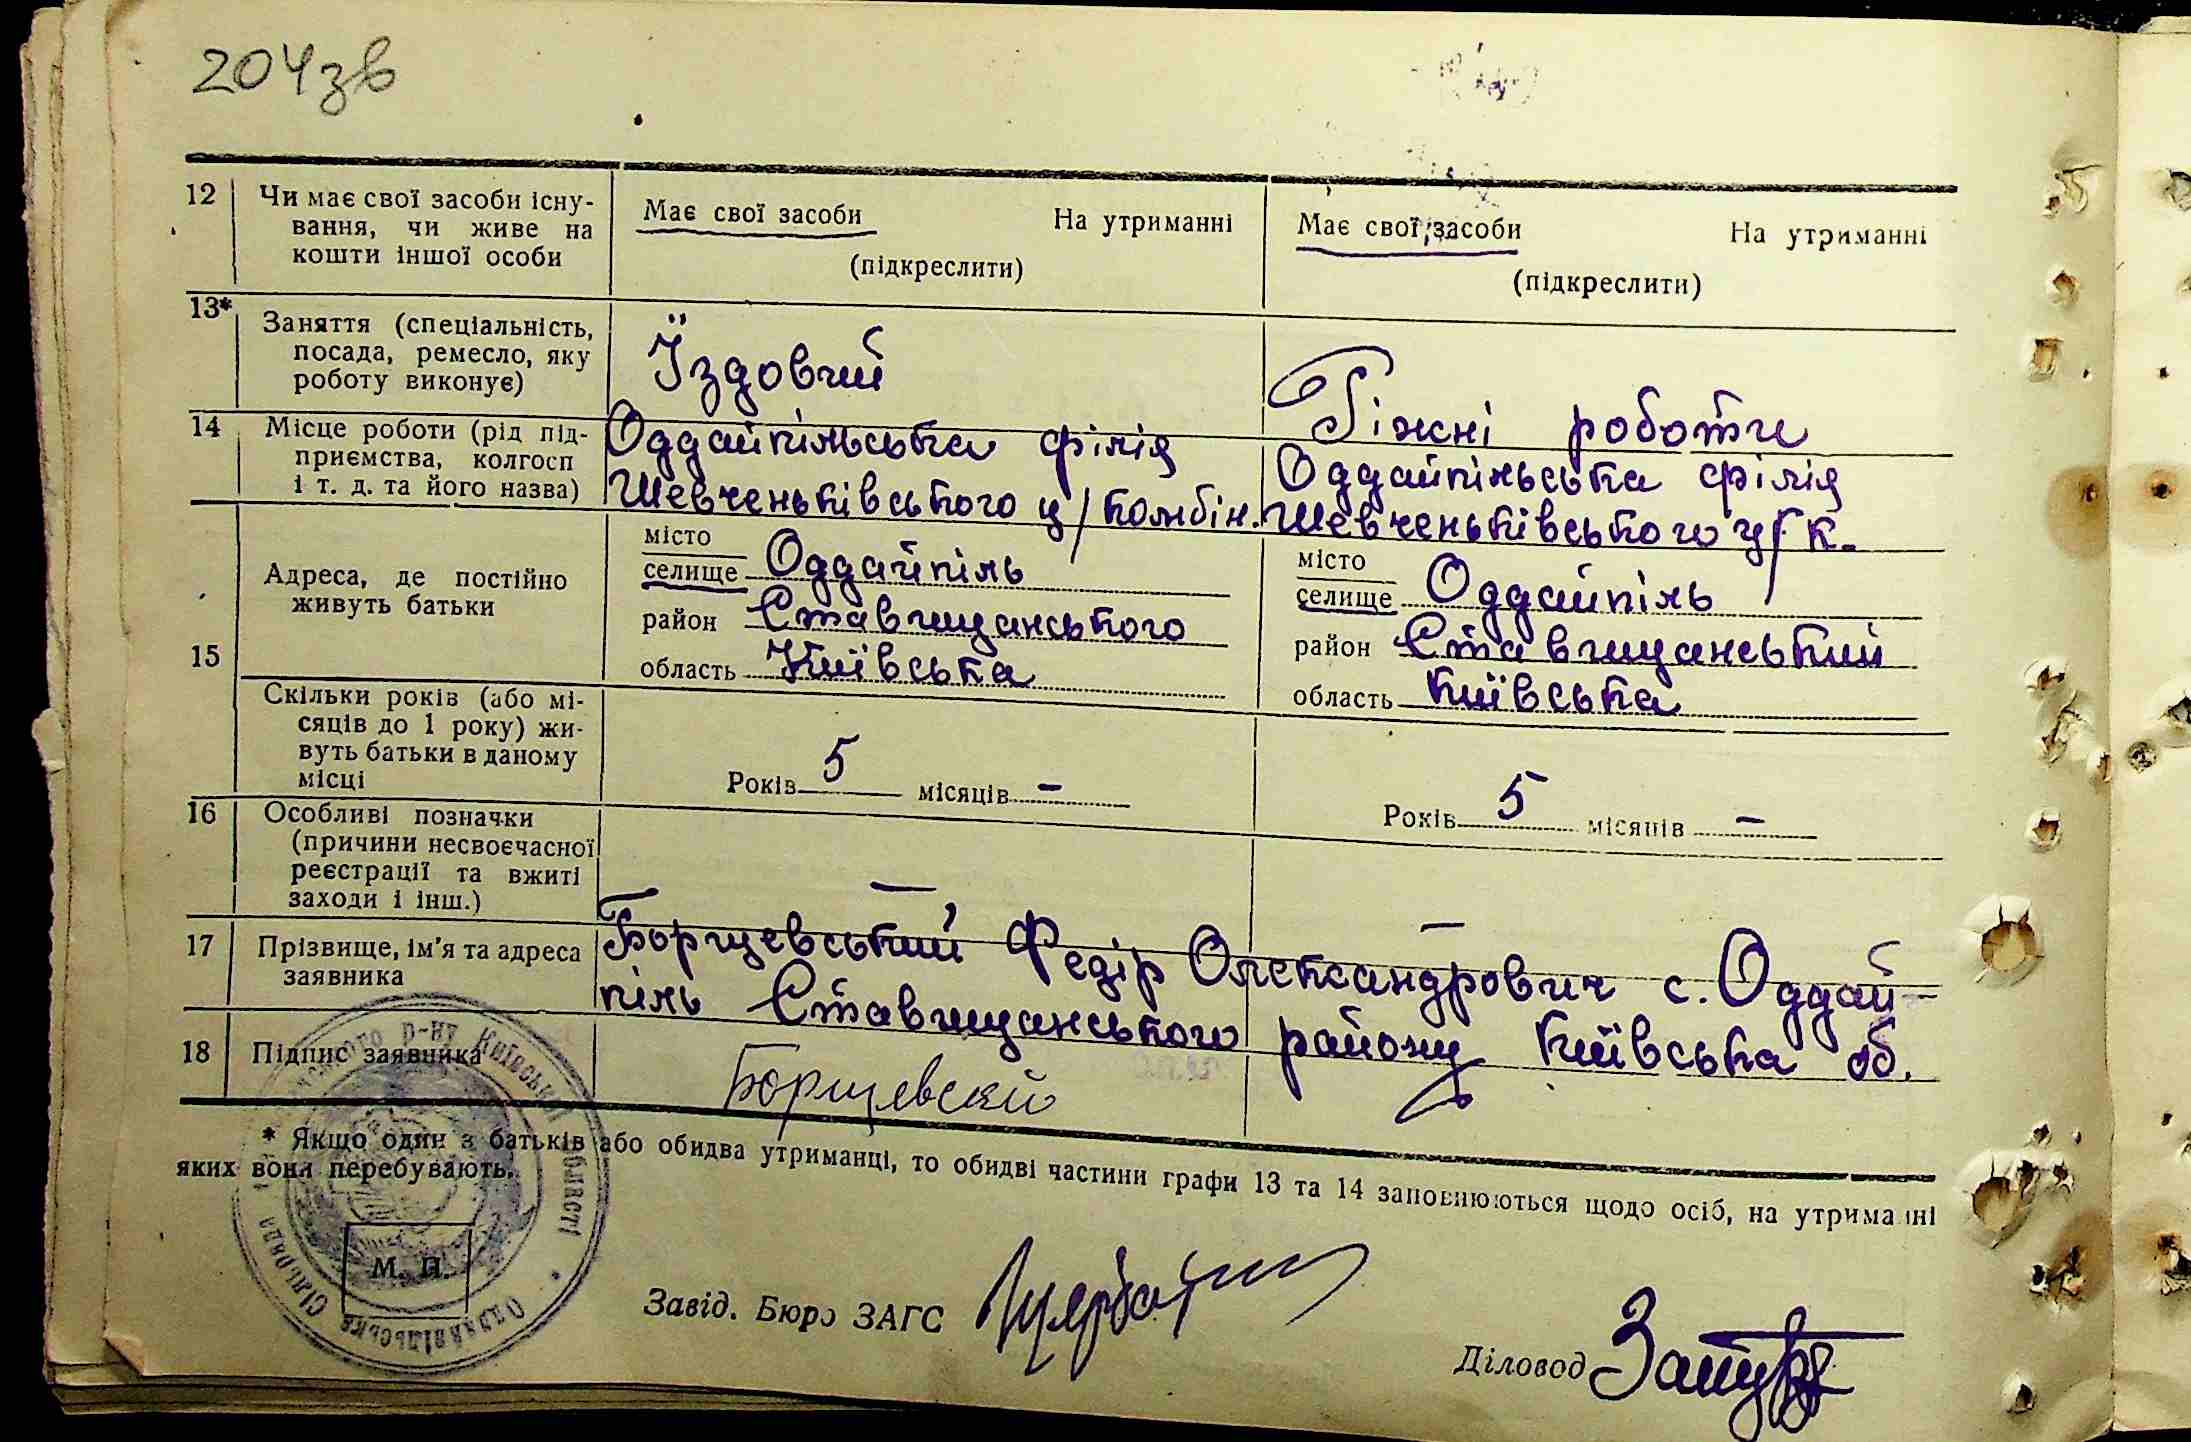 204зв
12 Чи має свої засоби існу-
вання, чи живе на
кошти іншої особи
Має свої засоби На утриманні
(підкреслити)
Має свої засоби На утриманні
(підкреслити)
13* Заняття (спеціальність,
посада, ремесло, яку
роботу виконує)
Їздовий
Ріжні роботи
14 Місце роботи (рід під-
приємства, колгосп
і т. д. та його назва)
Оддайпільська філія
Шевченьківського ц/комбін.
Оддайпільська філія
Шевченьківського ц/к.
15 Адреса, де постійно
живуть батьки
місто
селище Оддайпіль
район Ставищанського
область Київська
місто
селище Оддайпіль
район Ставищанський
область Київська
Скільки років (або мі-
сяців до 1 року) жи-
вуть батьки в даному
місці
Років 5 місяців –
Років 5 місяців –
16 Особливі позначки
(причини несвоєчасної
реєстрації та вжиті
заходи і інш.)
—
—
17 Прізвище, ім'я та адреса
заявника
Борщевський Федір Олександрович с. Оддай-
піль Ставищанського району Київська об.
18 Підпис заявника
Борщевскій
* Якщо один з батьків або обидва утриманці, то обидві частини графи 13 та 14 заповнюються щодо осіб, на утриманні
яких вони перебувають.
М. П.
р-ну Київської області
сільрада
Завід. Бюро ЗАГС
Діловод